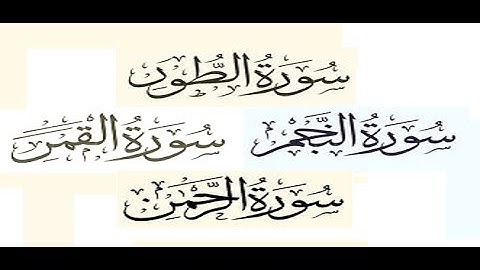 سُورَةُ الطُّورِ
سُورَةُ النَّجْمِ
سُورَةُ القَمَرِ
سُورَةُ الرَّحْمَن